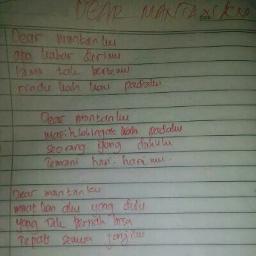 DEAR MANTANKU
Dear mantanku
apa kabar dirimu
lama tak bertemu
rindu kah kau padaku
Dear mantanku
masih kah ingat kah padaku
seorang yang dahulu
temani hari-harimu.
Dear mantanku
maaf kan aku yang dulu
yang tak pernah bisa
tepati semua janjiku